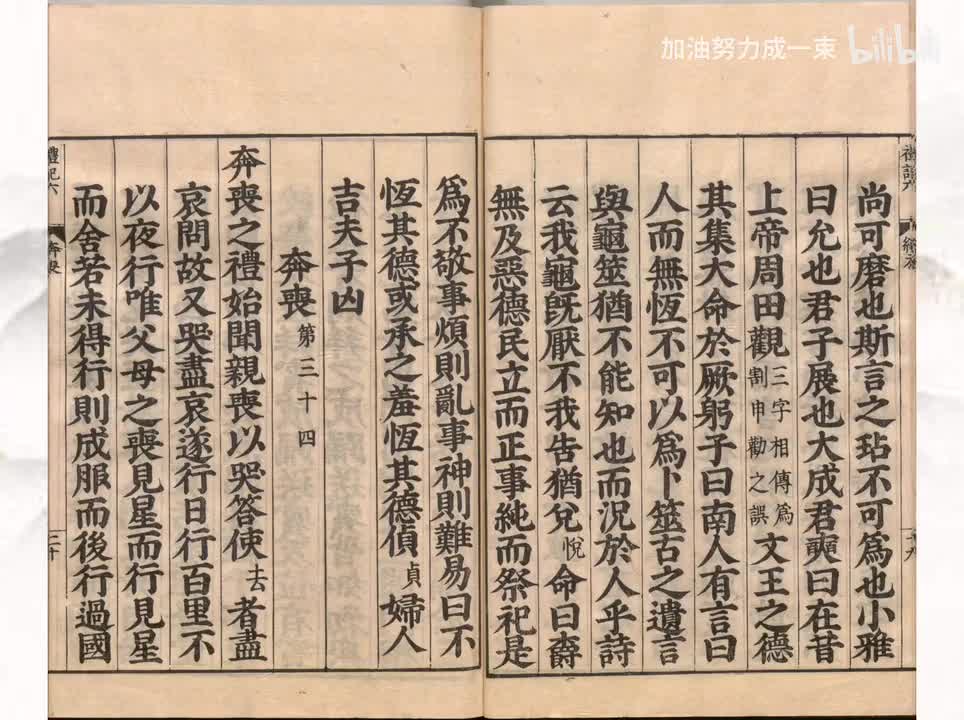 加油努力成一束
bilibili
尚可磨也斯言之玷不可爲也小雅
曰允也君子展也大成君奭曰在昔
上帝周田觀三字相傳爲割申勸之誤文王之德
其集大命於厥躬子曰南人有言曰
人而無恆不可以爲卜筮古之遺言
與龜筮猶不能知也而況於人乎詩
云我龜旣厭不我告猶兌悅命曰爵
無及惡德民立而正事純而祭祀是
爲不敬事煩則亂事神則難易曰不
恆其德或承之羞恆其德偵貞婦人
吉夫子凶
奔喪第三十四
奔喪之禮始聞親喪以哭答使去者盡
哀問故又哭盡哀遂行日行百里不
以夜行唯父母之喪見星而行見星
而舍若未得行則成服而後行過國
禮記六
奔喪
三十